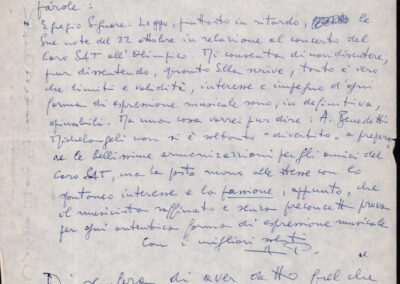 parole:
"Egregio Signore. Leggo, piuttosto in ritardo, le
Sue note del 22 ottobre in relazione al concerto del
Coro SAT all'Olimpico. Mi consenta di non discutere,
pur dissentendo, quanto Ella scrive, tanto è vero
che limiti e validità, interesse e impegno d'ogni
forma di espressione musicale sono, in definitiva,
opinabili. Ma una cosa vorrei pur dire: A. Benedetti
Michelangeli non si è soltanto "divertito" a prepara-
re le bellissime armonizzazioni per gli amici del
Coro SAT, ma ha posto mano alle stesse con lo
spontaneo interesse e la passione, appunto, che
il musicista raffinato e senza preconcetti prova
per ogni autentica forma di espressione musicale
Con i migliori saluti
di aver detto quel che